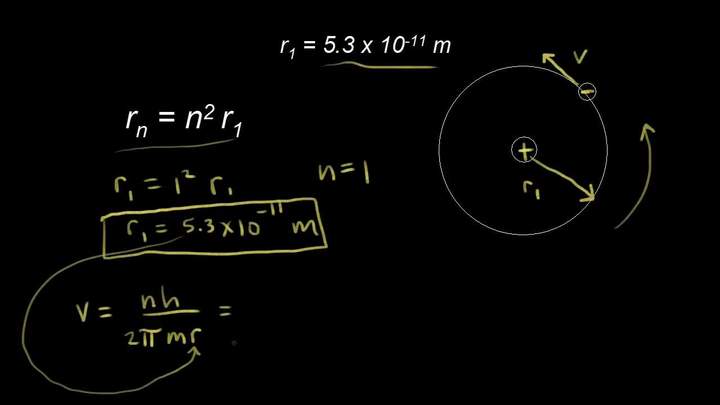 r₁ = 5.3 x 10⁻¹¹ m
v
rₙ = n² r₁
+
−
r₁
r₁ = 1² r₁
n = 1
r₁ = 5.3 x 10⁻¹¹ m
v = nh / 2π mr =